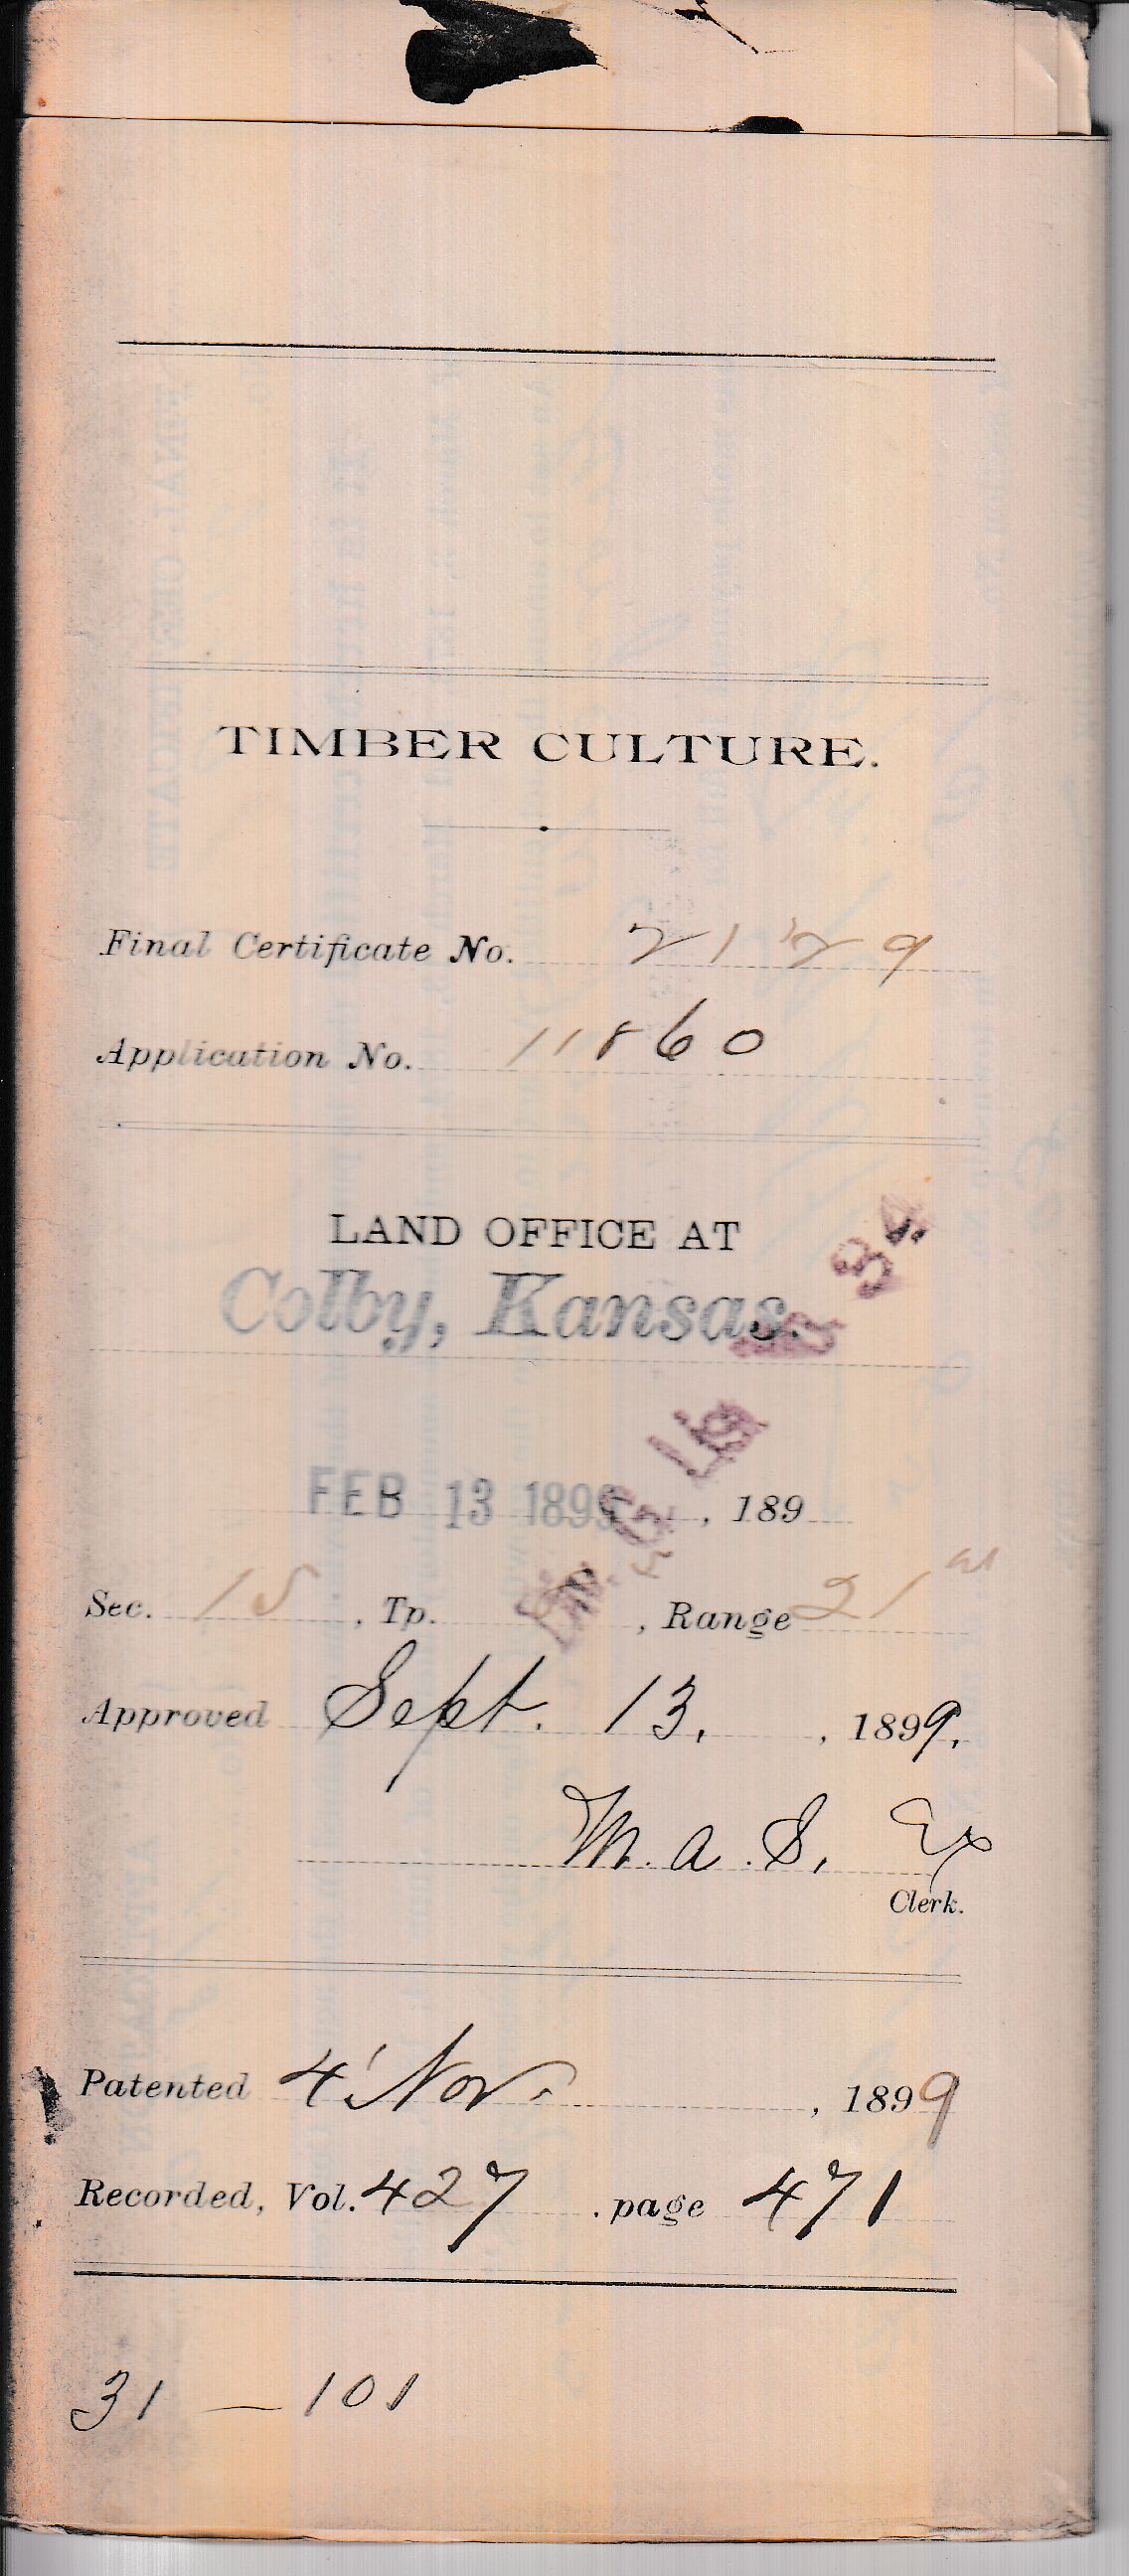 TIMBER CULTURE.
Final Certificate No. 2129
Application No. 11860
LAND OFFICE AT
Colby, Kansas.
FEB 13 1899, 189
Sec. 15, Tp. , Range 21
Approved Sept. 13, , 1899.
M. a. S. Ex
Clerk.
Patented 4' Nov. , 1899
Recorded, Vol. 427 . page 471
31 — 101